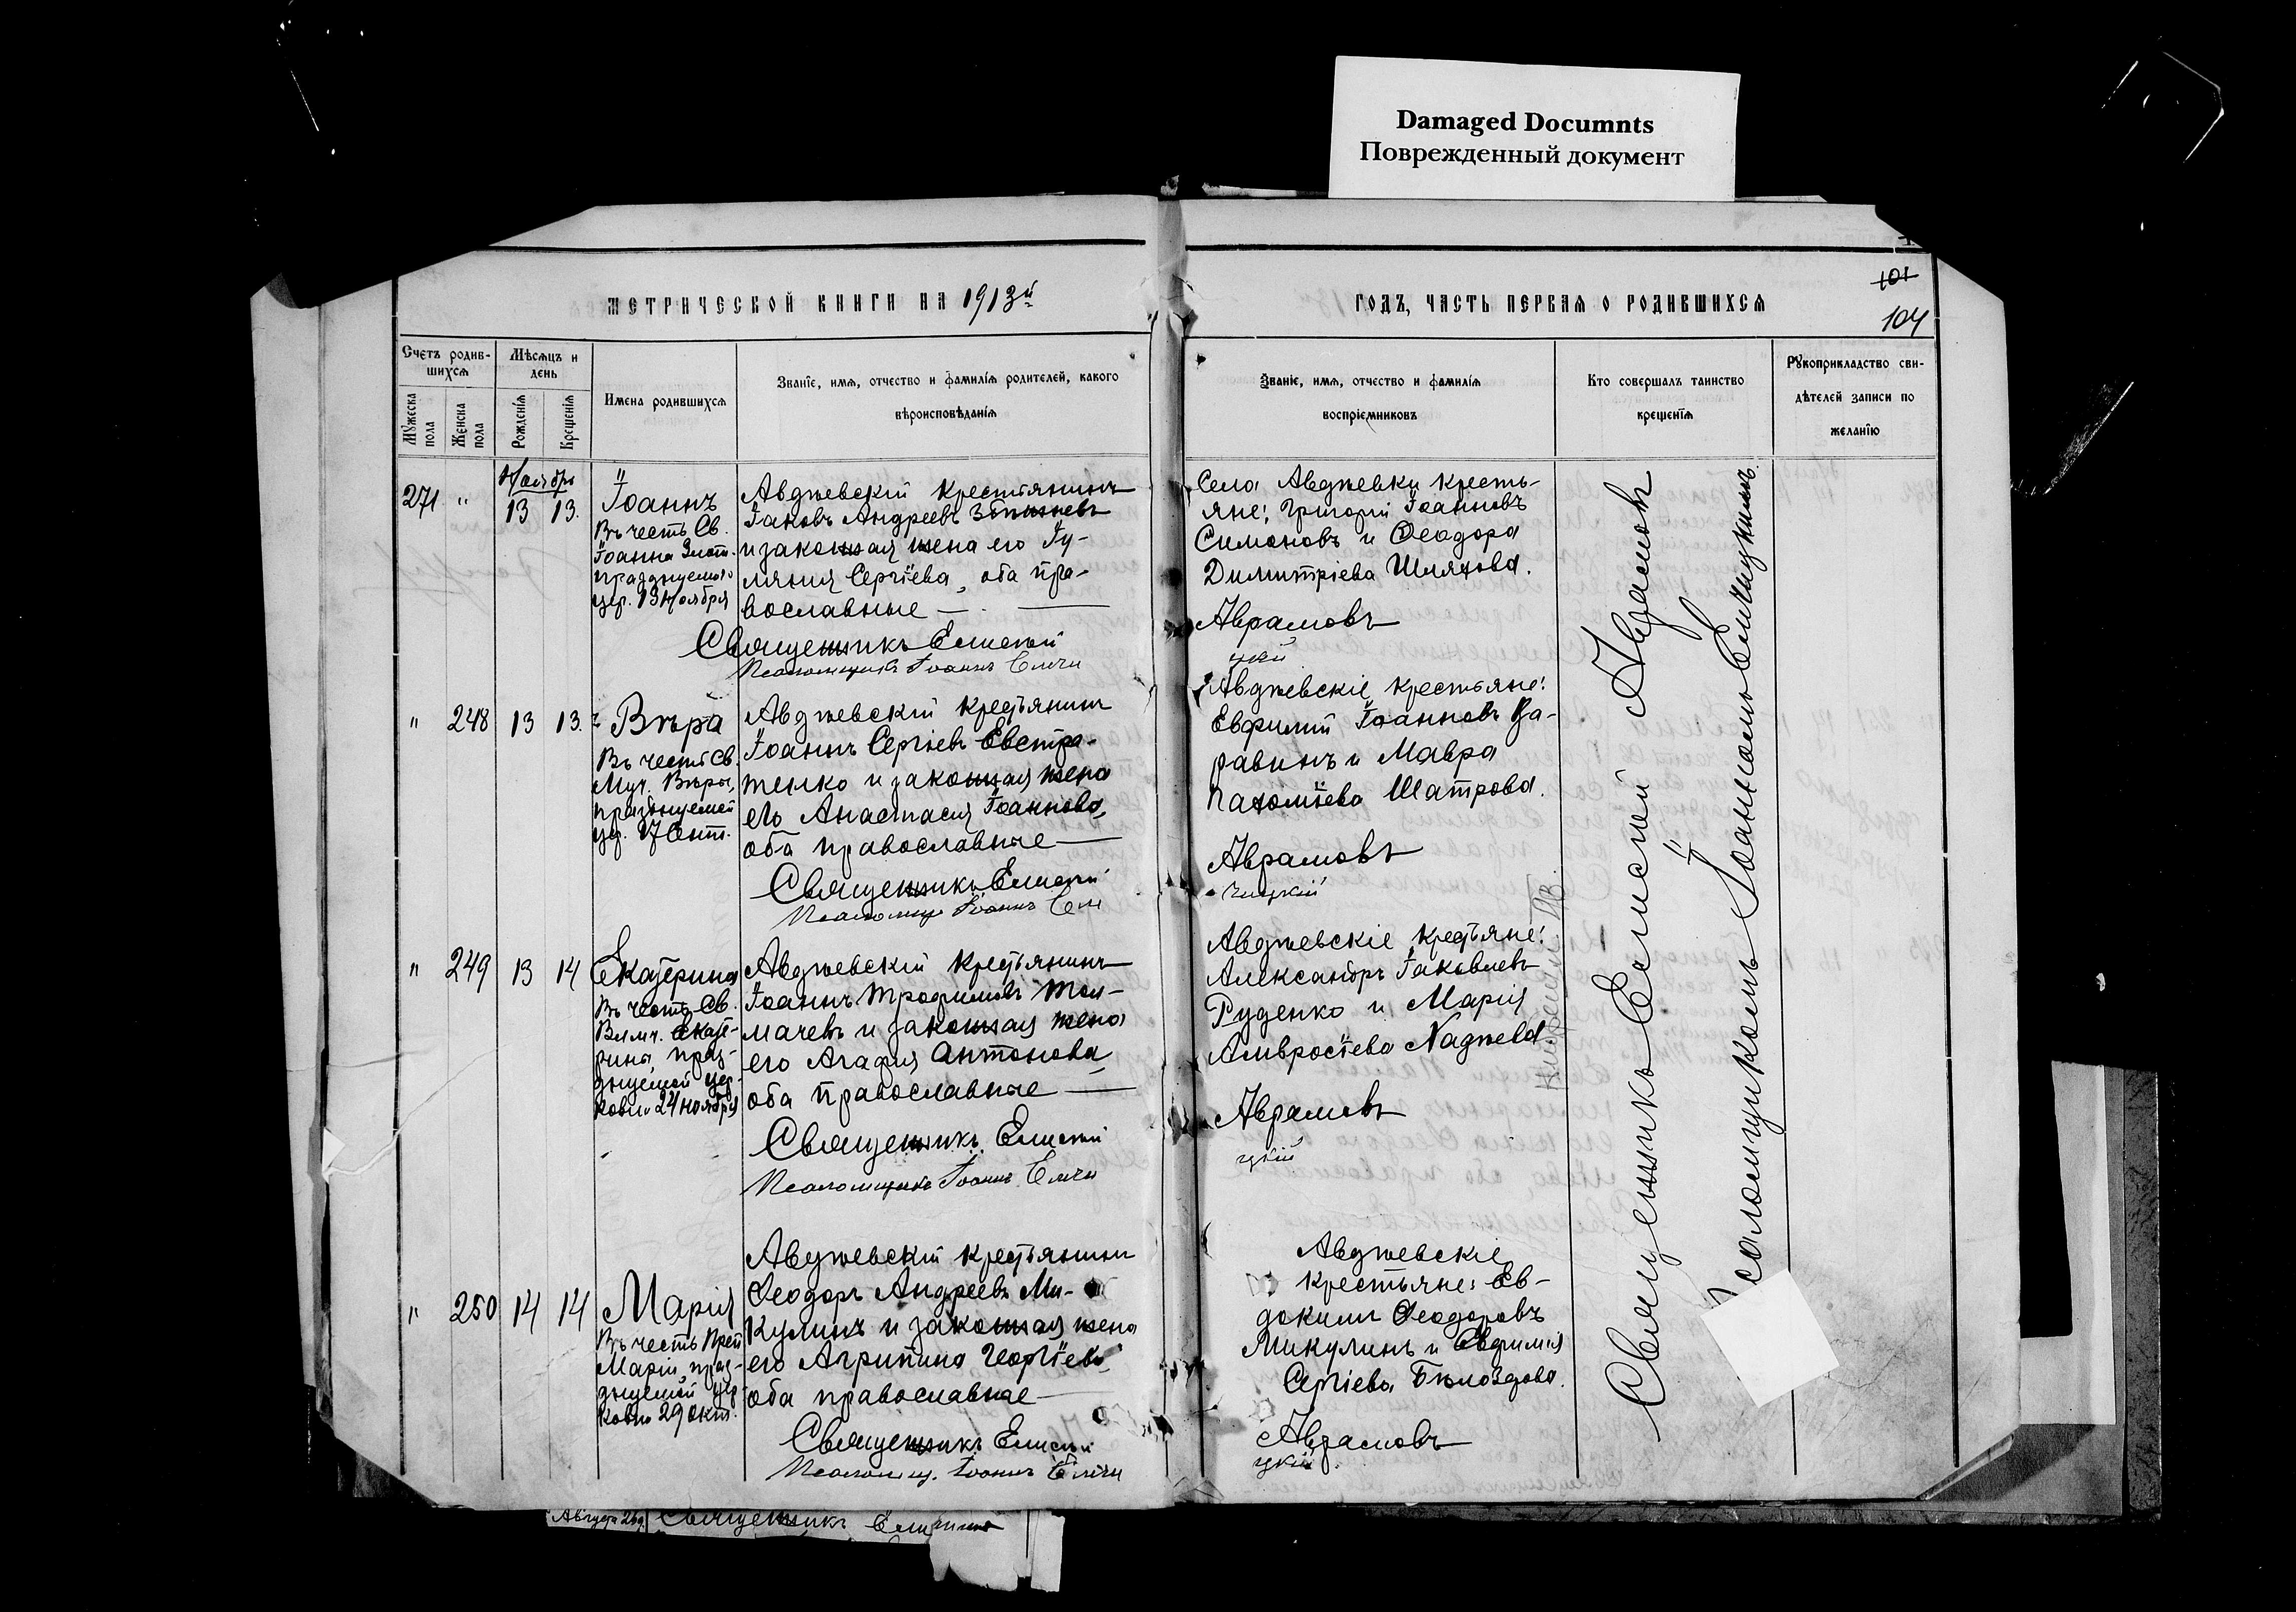 Damaged Documnts
Поврежденный документ
МЕТРИЧЕСКОЙ КНИГИ НА 1913й
ГОДЪ, ЧАСТЬ ПЕРВАЯ О РОДИВШИХСЯ
101
104
Счетъ родив-
шихся
Мужеска пола
Женска пола
Мѣсяцъ и
день
Рожденія
Крещенія
Имена родившихся
Званіе, имя, отчество и фамилія родителей, какого
вѣроисповѣданія
Званіе, имя, отчество и фамилія
воспріемниковъ
Кто совершалъ таинство
крещенія
Рукоприкладство сви-
дѣтелей записи по
желанію
Ноябрь
271 " 13 13.
Іоаннъ
Въ честь Св.
Іоанна Злат.
празднуемаго
цер. 13 Ноября
Авдѣевскій крестьянинъ
Іаковъ Андреевъ
и законная жена его Іу-
ліанія Сергіева, оба пра-
вославные
Священникъ Елисей
Псаломщикъ Іоаннъ Елчи
Села Авдѣевки кресть-
яне: Григорій Іоанновъ
Симоновъ и Ѳеодора
Димитріева Шляхова.
Аврамовъ
цкій
" 248 13 13.
Вѣра
Въ честь Св.
Муч. Вѣры,
празднуемой
цер. 17 Сент.
Авдѣевскій крестьянинъ
Іоаннъ Сергіевъ Евстра-
тенко и законная жена
его Анастасія Іоаннова,
оба православные
Священникъ Елисей
Псаломщ. Іоаннъ Ели
Авдѣевскіе крестьяне:
Евфимій Іоанновъ Ца-
равинъ и Мавра
Пахоміева Шатрова.
Аврамовъ
чицкій
" 249 13 14
Екатерина
Въ честь Св.
Влмч. Екате-
рины, праз-
днуемой цер-
ковію 24 ноября
Авдѣевскій крестьянинъ
Іоаннъ Трофимовъ Тол-
мачевъ и законная жена
его Агафія Антонова
оба православные
Священникъ Елисей
Псаломщикъ Іоаннъ Елчи
Авдѣевскіе крестьяне:
Александръ Іаковлевъ
Руденко и Марія
Амвросіева
Аврамовъ
цкій
" 250 14 14
Марія
Въ честь Преп.
Маріи, праз-
днуемой цер-
ковію 29 Окт.
Авдѣевскій крестьянинъ
Ѳеодоръ Андреевъ Ми-
кулинъ и законная жена
его Агрипина Георгіева
оба православные
Священникъ Елисей
Псаломщ. Іоаннъ Елчи
Авдѣевскіе
крестьяне: Ев-
докимъ Ѳеодоровъ
Микулинъ и Евфимія
Сергіева
Аврамовъ
цкій
Священникъ Елисей Аврамовъ
Псаломщикомъ Іоанномъ Елчицкимъ.
Священникъ